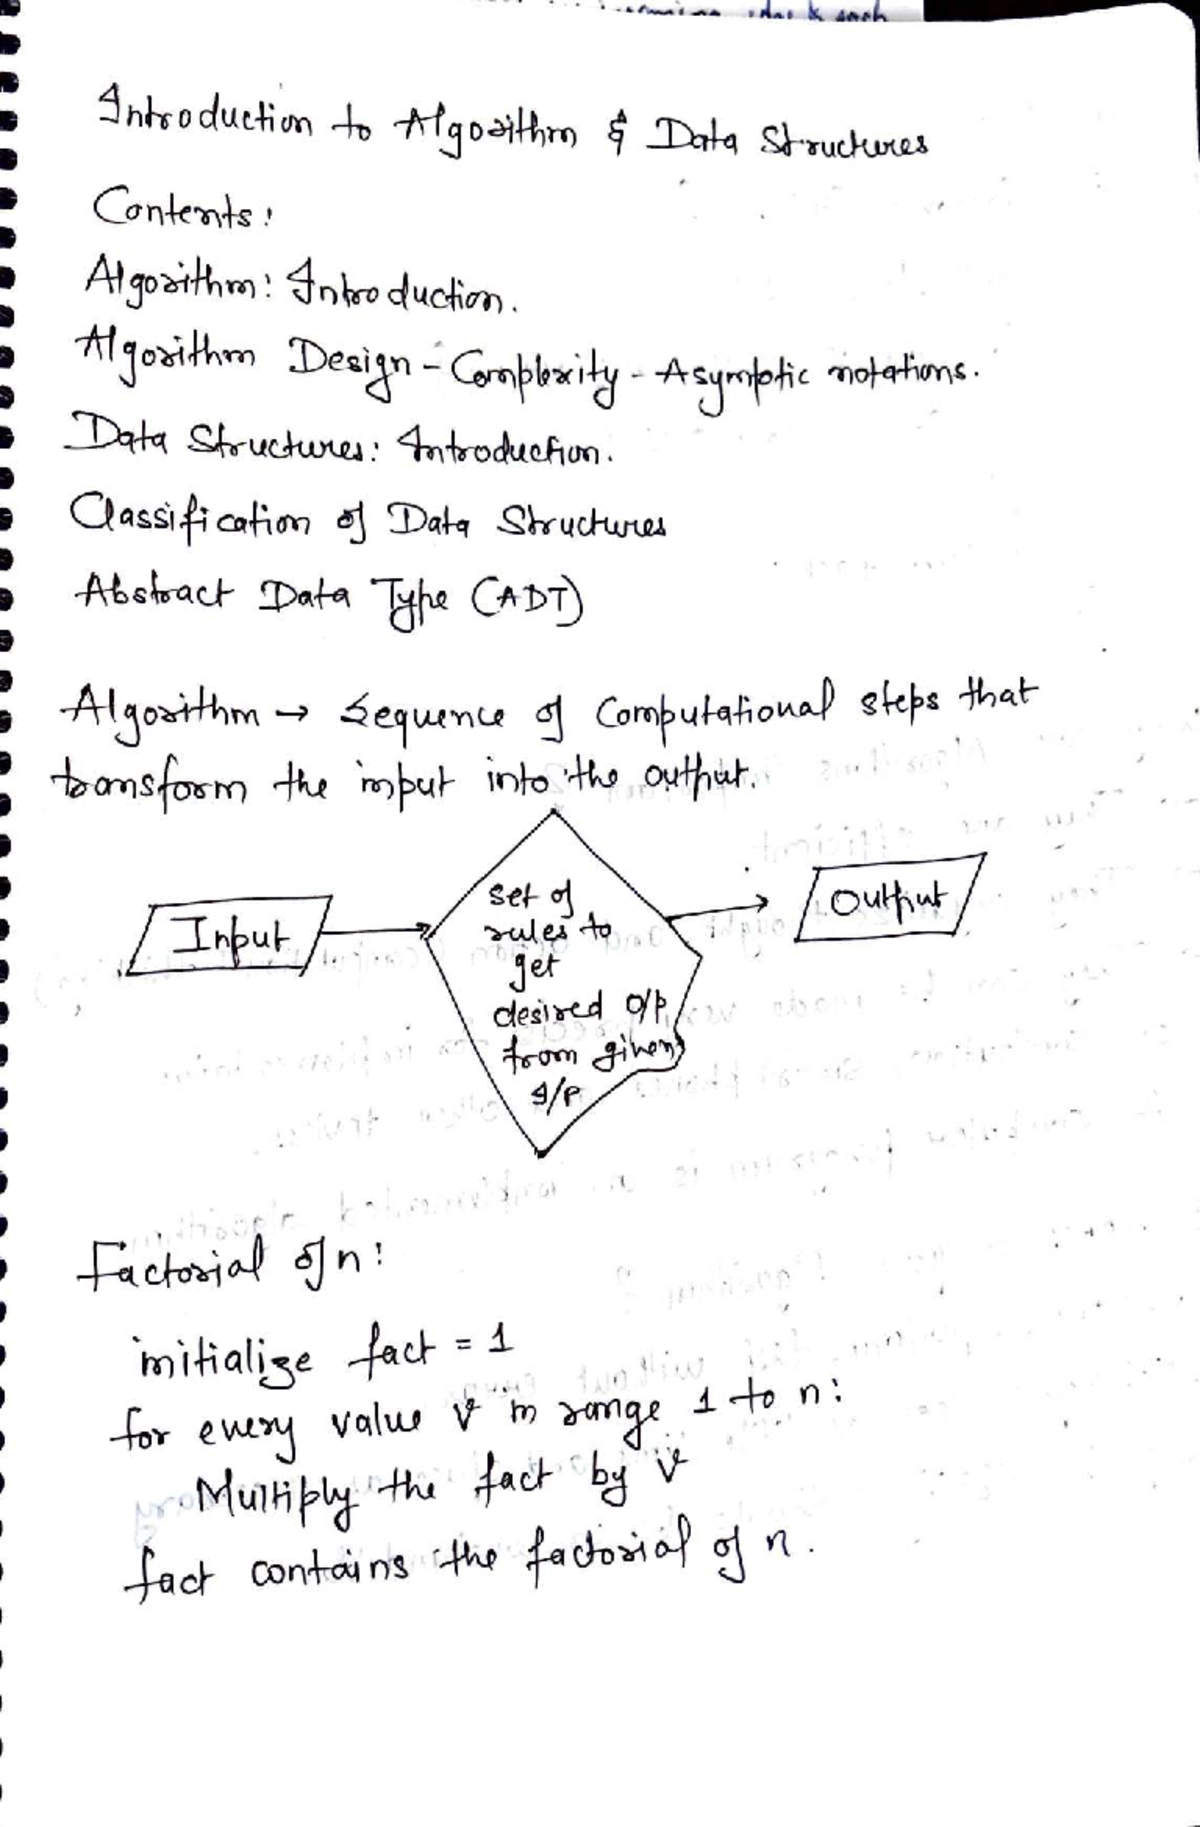 Introduction to Algorithm & Data Structures
Contents:
Algorithm: Introduction.
Algorithm Design - Complexity - Asymptotic notations.
Data Structures: Introduction.
Classification of Data Structures
Abstract Data Type (ADT)
Algorithm → Sequence of Computational steps that
transform the input into the output.
Input
set of
rules to
get
desired o/p
from given
I/P
Output
Factorial of n:
initialize fact = 1
for every value v in range 1 to n:
Multiply the fact by v
fact contains the factorial of n.